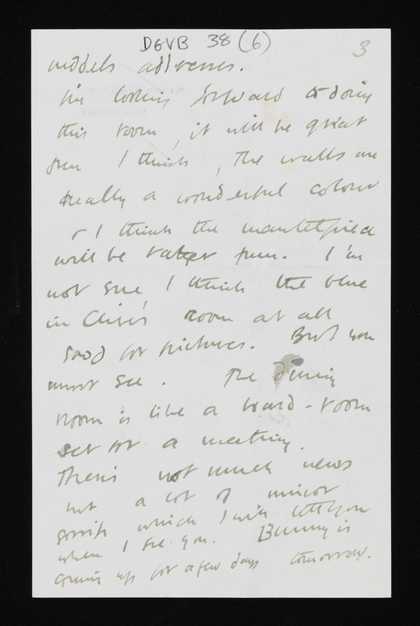 DGVB 38 (6)
3
models addresses.
I'm looking forward to doing
this room, it will be great
fun I think, the walls are
really a wonderful colour
& I think the mantelpiece
will be rather fun. I'm
not sure I think the blue
in Clive's room at all
good for pictures. But you
must see. The dining
room is like a board-room
set for a meeting.
There's not much news
but a lot of minor
gossip which I will tell you
when I see you. Bunny is
coming up for a few days tomorrow.